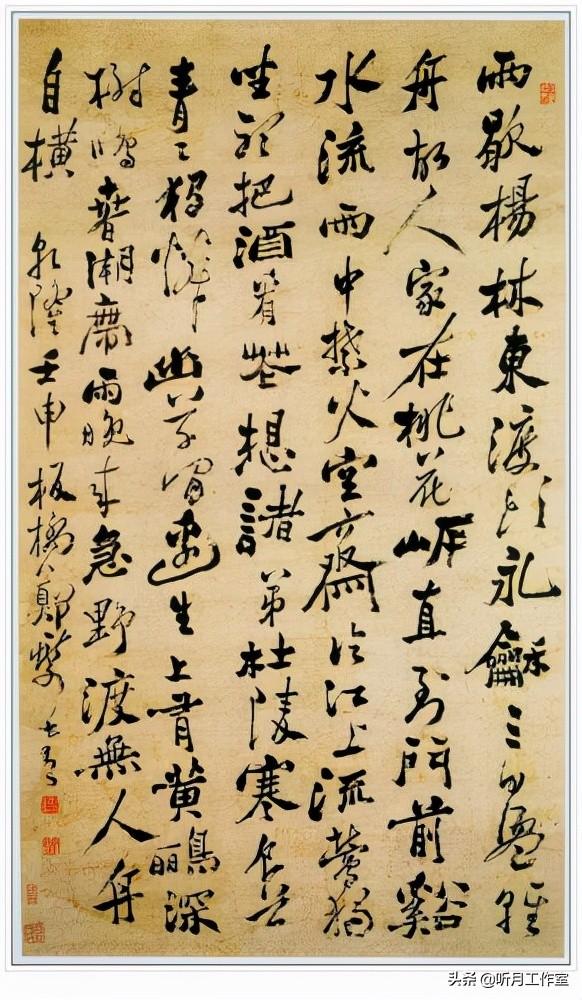 雨歇楊林東渡頭永龢三日盪輕
舟故人家在桃花岸直到門前谿
水流雨中禁火空齋冷江上流鶯獨
坐聽把酒看花想諸弟杜陵寒食草
青〻獨憐幽草澗邊生上有黃鸝深
樹鳴春潮帶雨晚來急野渡無人舟
自橫 乾隆壬申 板橋鄭燮
头条 @听月工作室